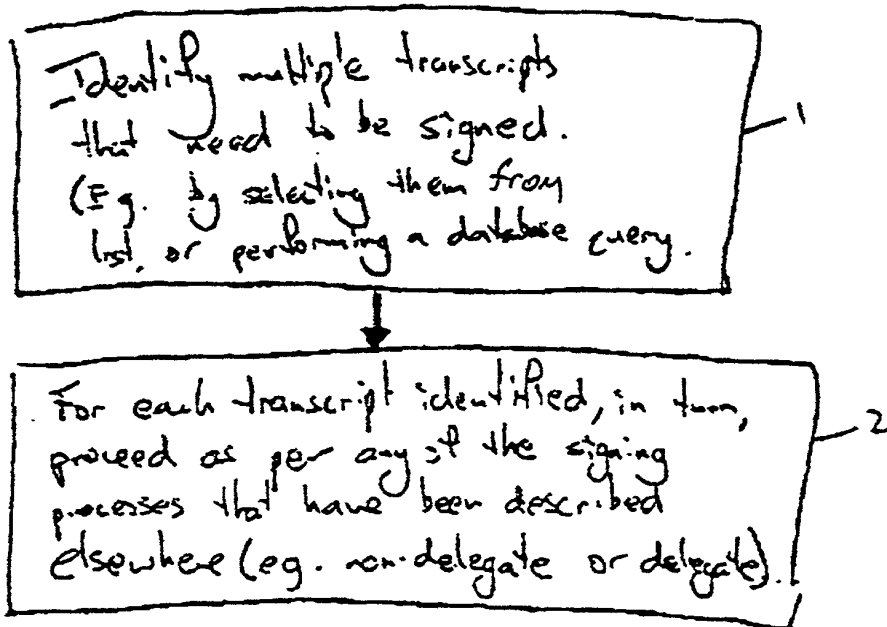 Identify multiple transcripts
that need to be signed.
(Eg. by selecting them from
list, or performing a database query.
1
For each transcript identified, in turn,
proceed as per any of the signing
processes that have been described
elsewhere (eg. non-delegate or delegate).
2